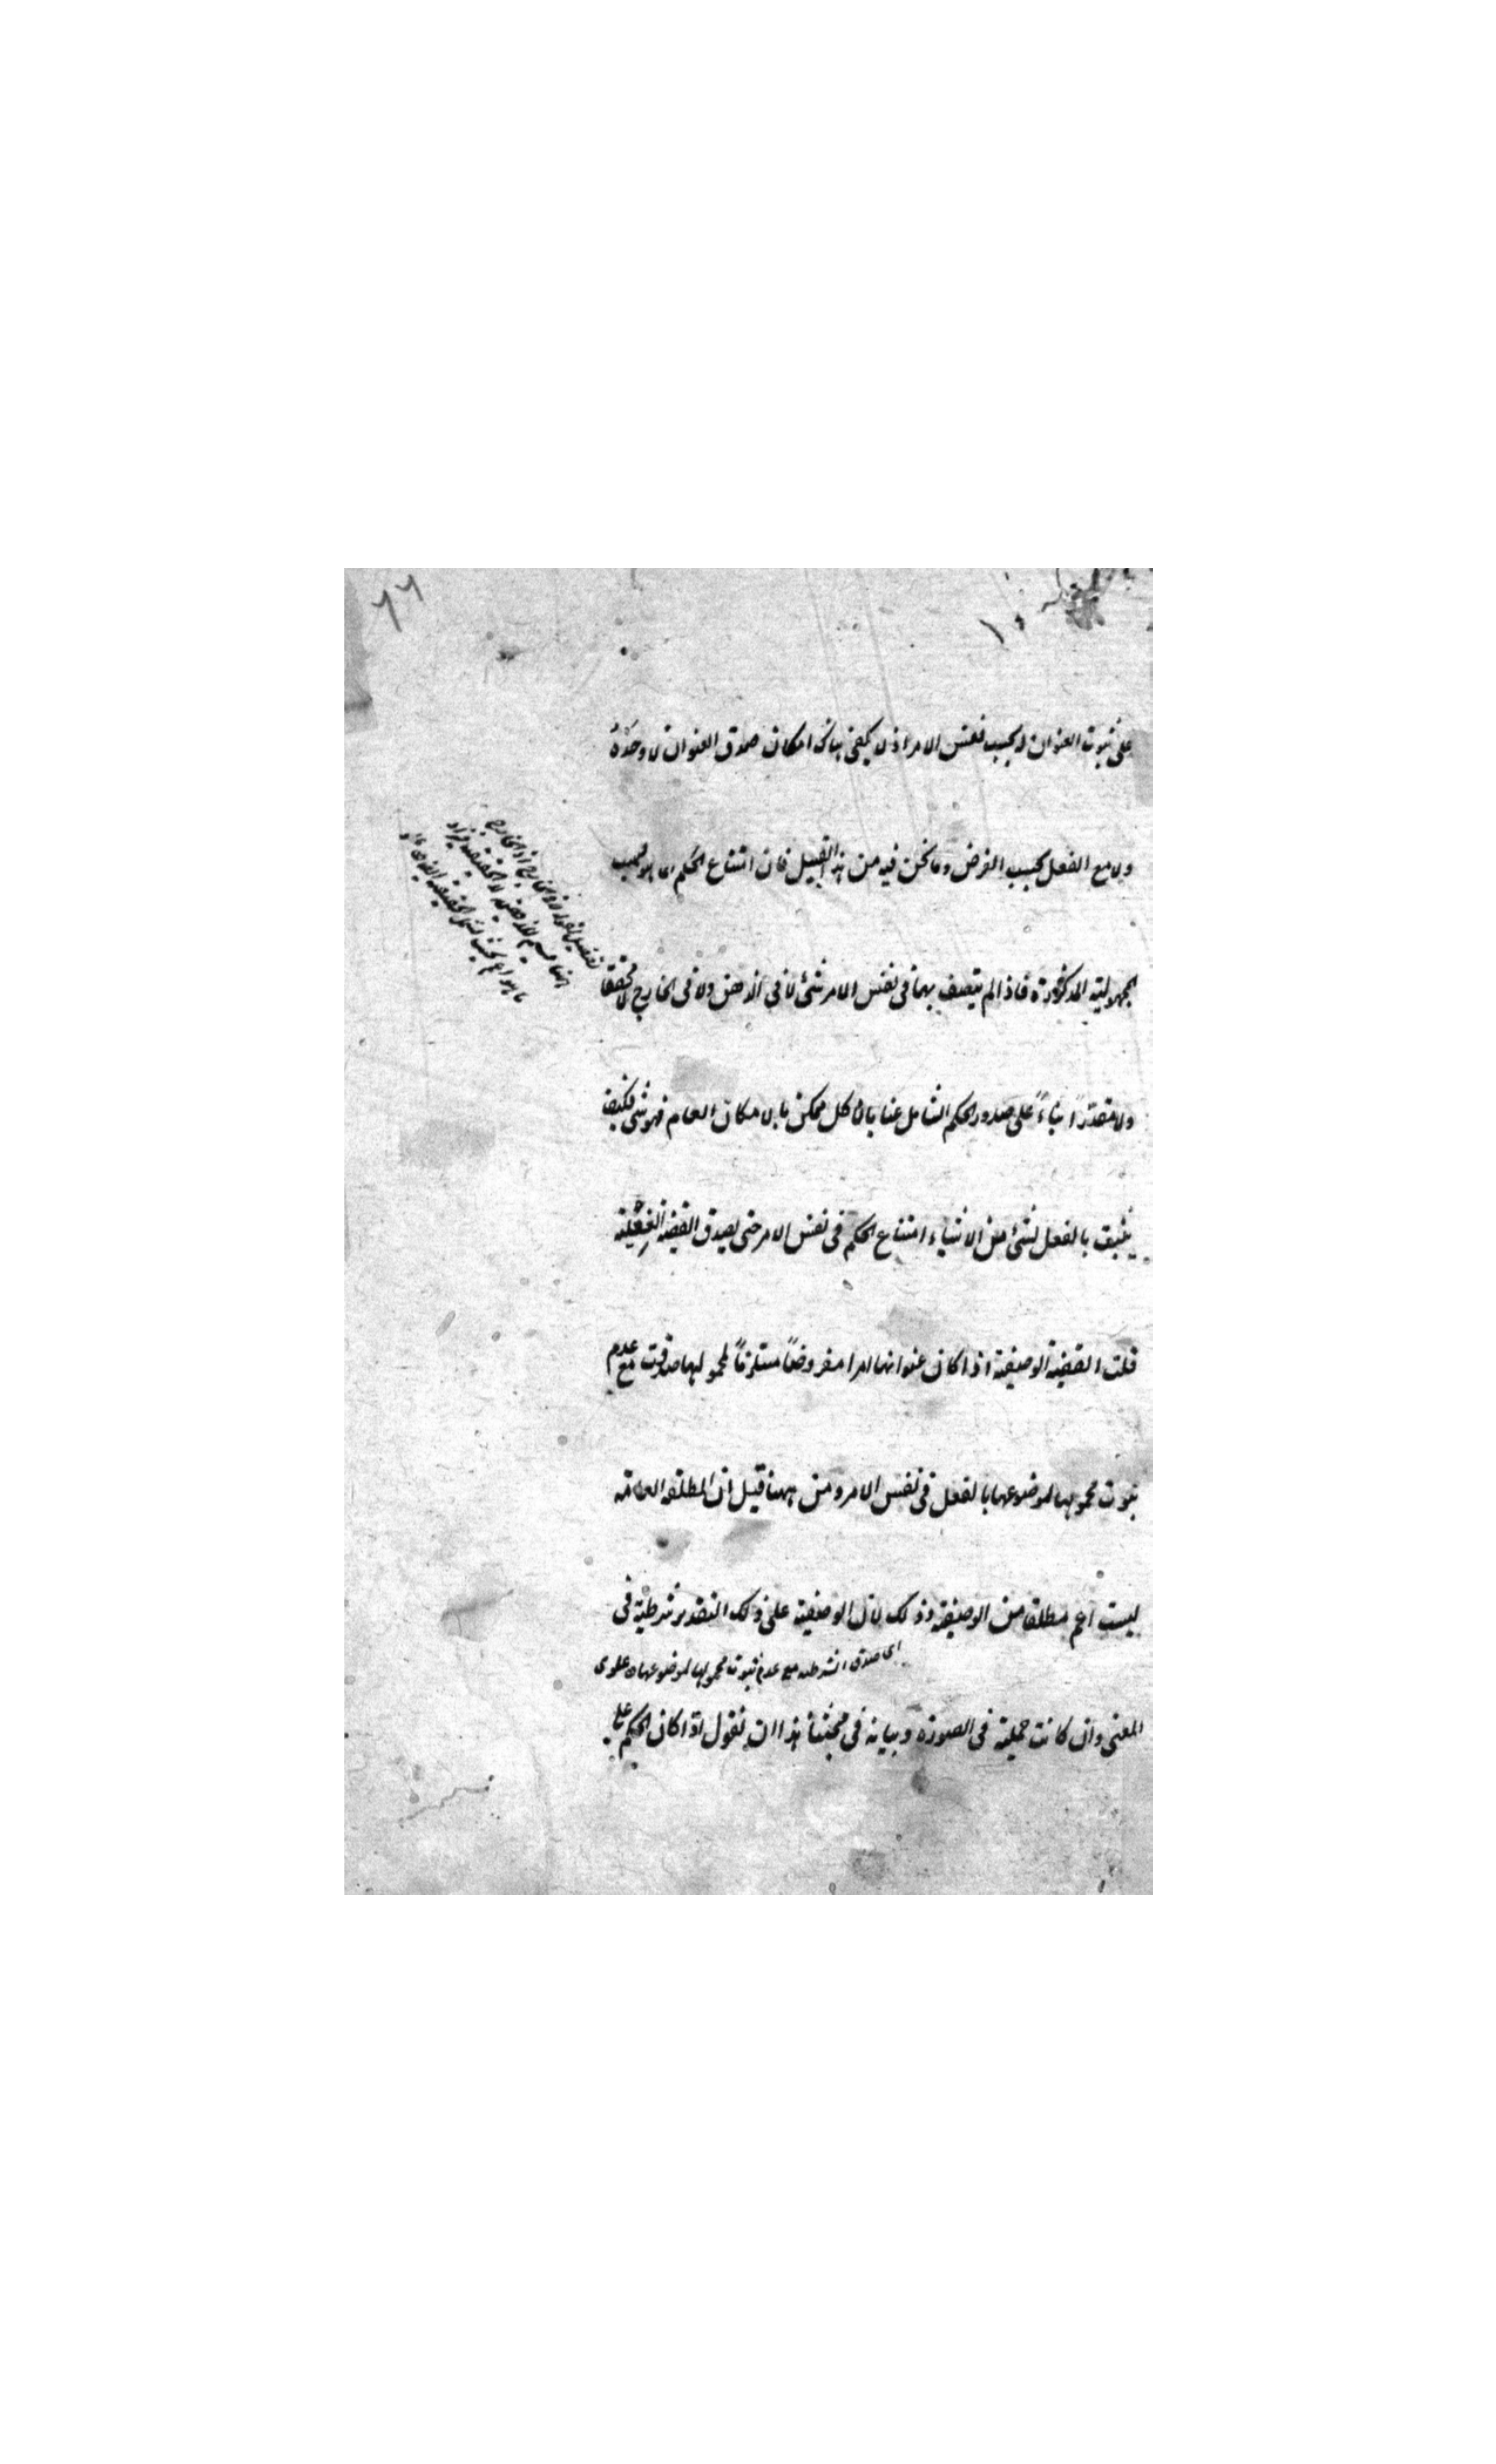 ٦٦
على ثبوت العنوان له بحسب نفس الامر اذ لا يكفى هناك امكان صدق العنوان لا وحده
ولا مع الفعل بحسب الفرض وما نحن فيه من هذا القبيل فان امتناع الحكم انما هو بحسب
المجهولية المذكورة فاذا لم يتصف بها فى نفس الامر شئ لا فى الذهن ولا فى الخارج لا محققا
ولا مقدّراً بناءً على صدور الحكم الشامل عنا بان كل ممكن بالامكان العام فهو شئ فكيف
يثبت بالفعل لشئ من الاشياء امتناع الحكم فى نفس الامر حتى يصدق القضية الفعلية
قلت القضية الوصفية اذا كان عنوانها امرا مفروضاً مستلزماً لمحمولها صدقت مع عدم
ثبوت محمولها لموضوعها بالفعل فى نفس الامر ومن ههنا قيل ان المطلقة العامة
ليست اعم مطلقا من الوصفية وذلك لان الوصفية على ذلك التقدير شرطية فى
اى صدق الشرطية مع عدم ثبوت محمولها لموضوعها
المعنى وان كانت حملية فى الصورة وبيانه فى مبحثنا هذا ان نقول اذا كان الحكم على